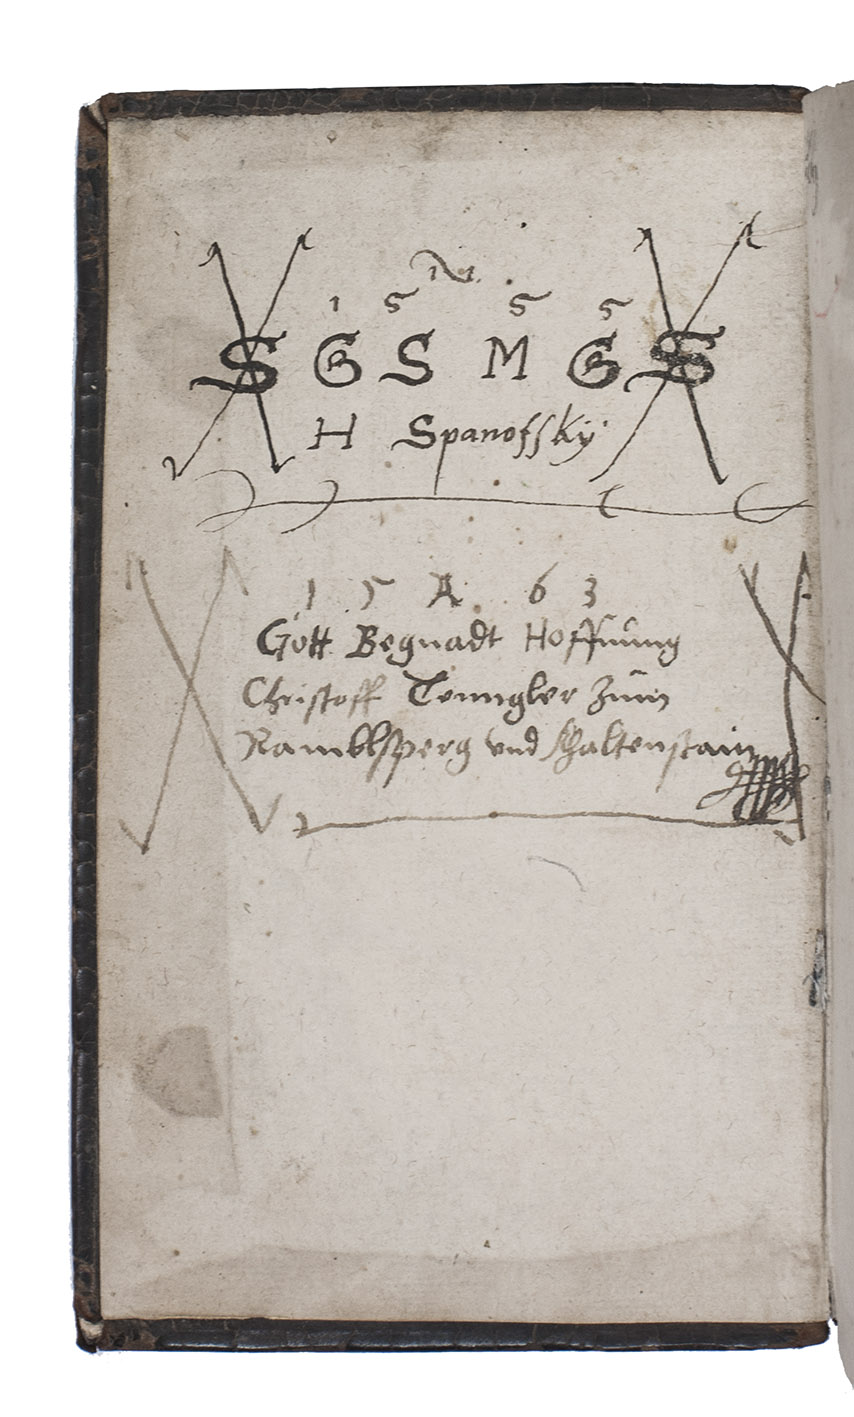 1 5 N 5 5
S G S M G S
H Spanofsky
1 5 A 63
Gott Begnadt Hoffnung
Christoff Tenngler zum
Ramblsperg vnd Schaltenstain